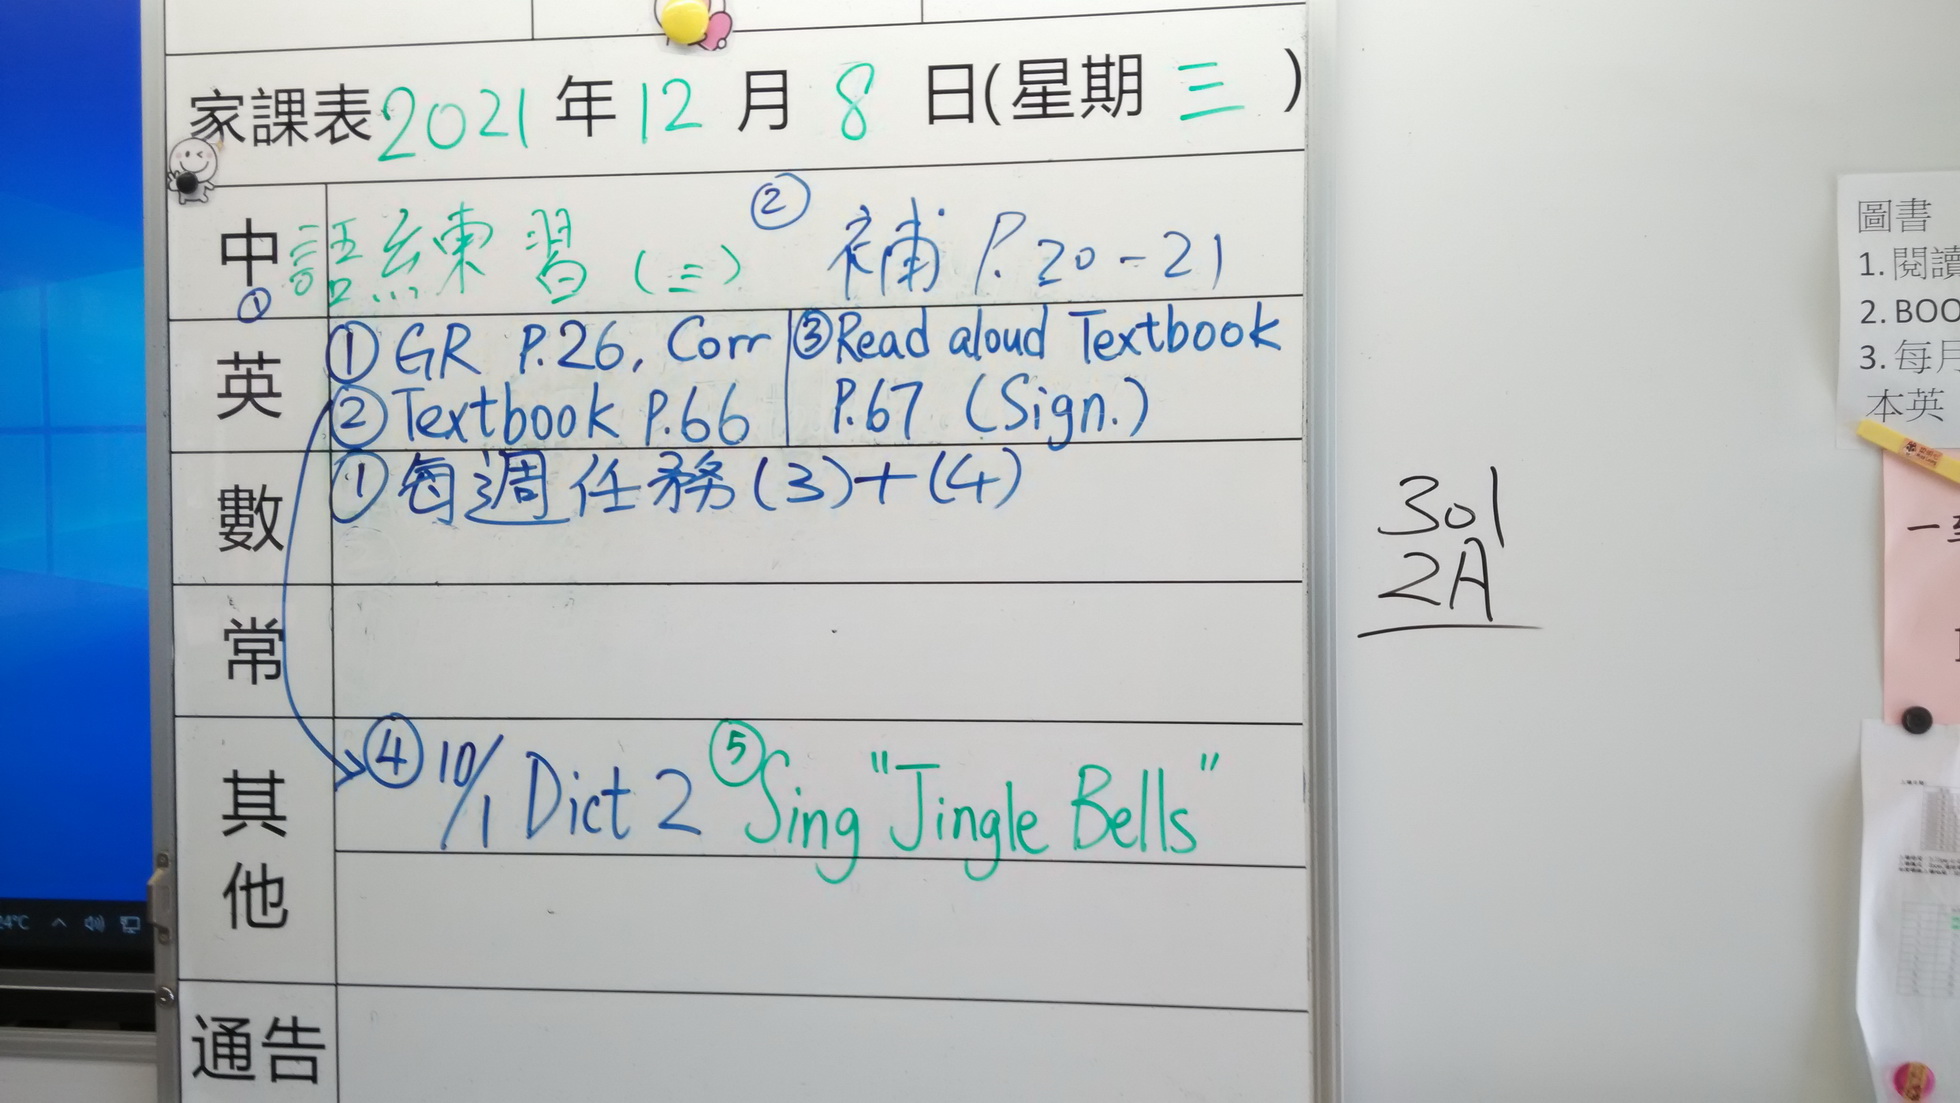 家課表 2021 年 12 月 8 日(星期 三 )
中 ① 語練習 (三) ② 補 P.20-21
英 ① GR P.26, Corr
② Textbook P.66
③ Read aloud Textbook
P.67 (Sign.)
數 ① 每週任務 (3)+(4)
常
其他 ④ 10/1 Dict 2 ⑤ Sing "Jingle Bells"
通告
301
2A
圖書
1. 閱讀
2. BOO
3. 每月
本英
4°C